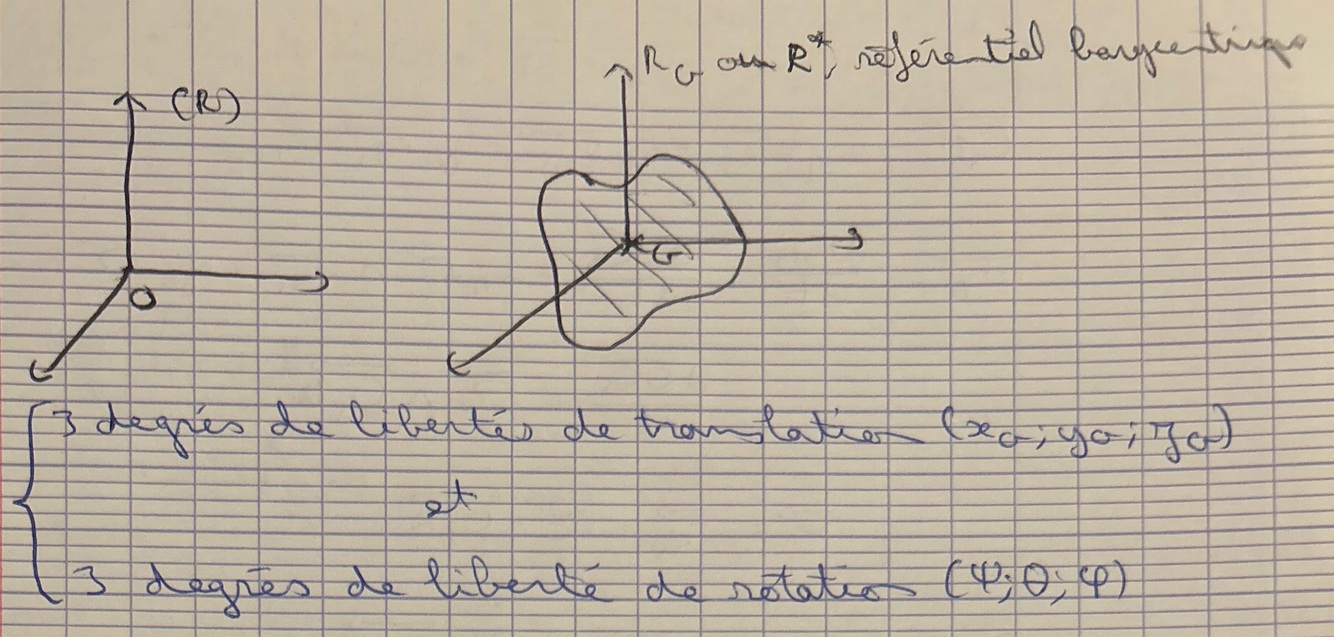 R_G ou R*, référentiel barycentrique
(R)
G
O
3 degrés de libertés de translation (x_G; y_G; z_G)
et
3 degrés de liberté de rotation (Ψ; θ; φ)